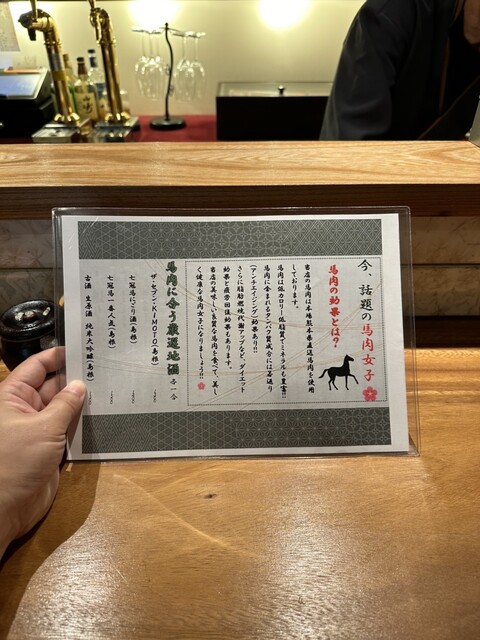 今、話題の馬肉女子
馬肉の効果とは?
当店の馬肉は本場熊本県直送馬肉を使用
しております。
馬肉は低カロリー低脂質でミネラルも豊富!!
馬肉に含まれるタンパク質成分には若返り
(アンチエイジング)効果あり!!
さらに脂肪燃焼代謝アップなど、ダイエット
効果と疲労回復効果もあります。
当店の美味しい良質な馬肉を食べて、美し
く健康な馬肉女子になりましょう!!
馬肉に合う厳選地酒 各一合
ザ・セブン・KIMOTO(島根)
七冠馬にごり酒(島根)
七冠馬一番人気(島根)
古酒 生原酒 純米大吟醸(島根)